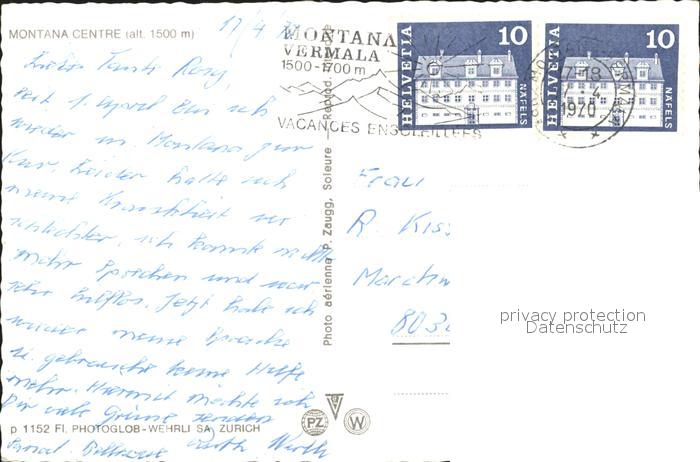 MONTANA CENTRE (alt. 1500 m)
17/4 70
MONTANA
VERMALA
1500-1700 m
VACANCES ENSOLEILLÉES
HELVETIA 10 NÄFELS
HELVETIA 10 NÄFELS
1970
Tante Rosy,
seit 1. April bin ich
wieder in Montana zur
Kur. Leider hatte sich
meine Krankheit ver
schlechtert, ich konnte nicht
mehr sprechen und war
sehr hilflos. Jetzt habe ich
wieder meine Sprache
u. gebrauche keine Hilfe
mehr. Hiermit möchte ich
Dir viele Grüsse senden
Ruth Werth
Photo aérienne P. Zaugg, Soleure
Frau
R. Kiss
803
privacy protection
Datenschutz
p 1152 Fl. PHOTOGLOB-WEHRLI SA, ZÜRICH
PZ W